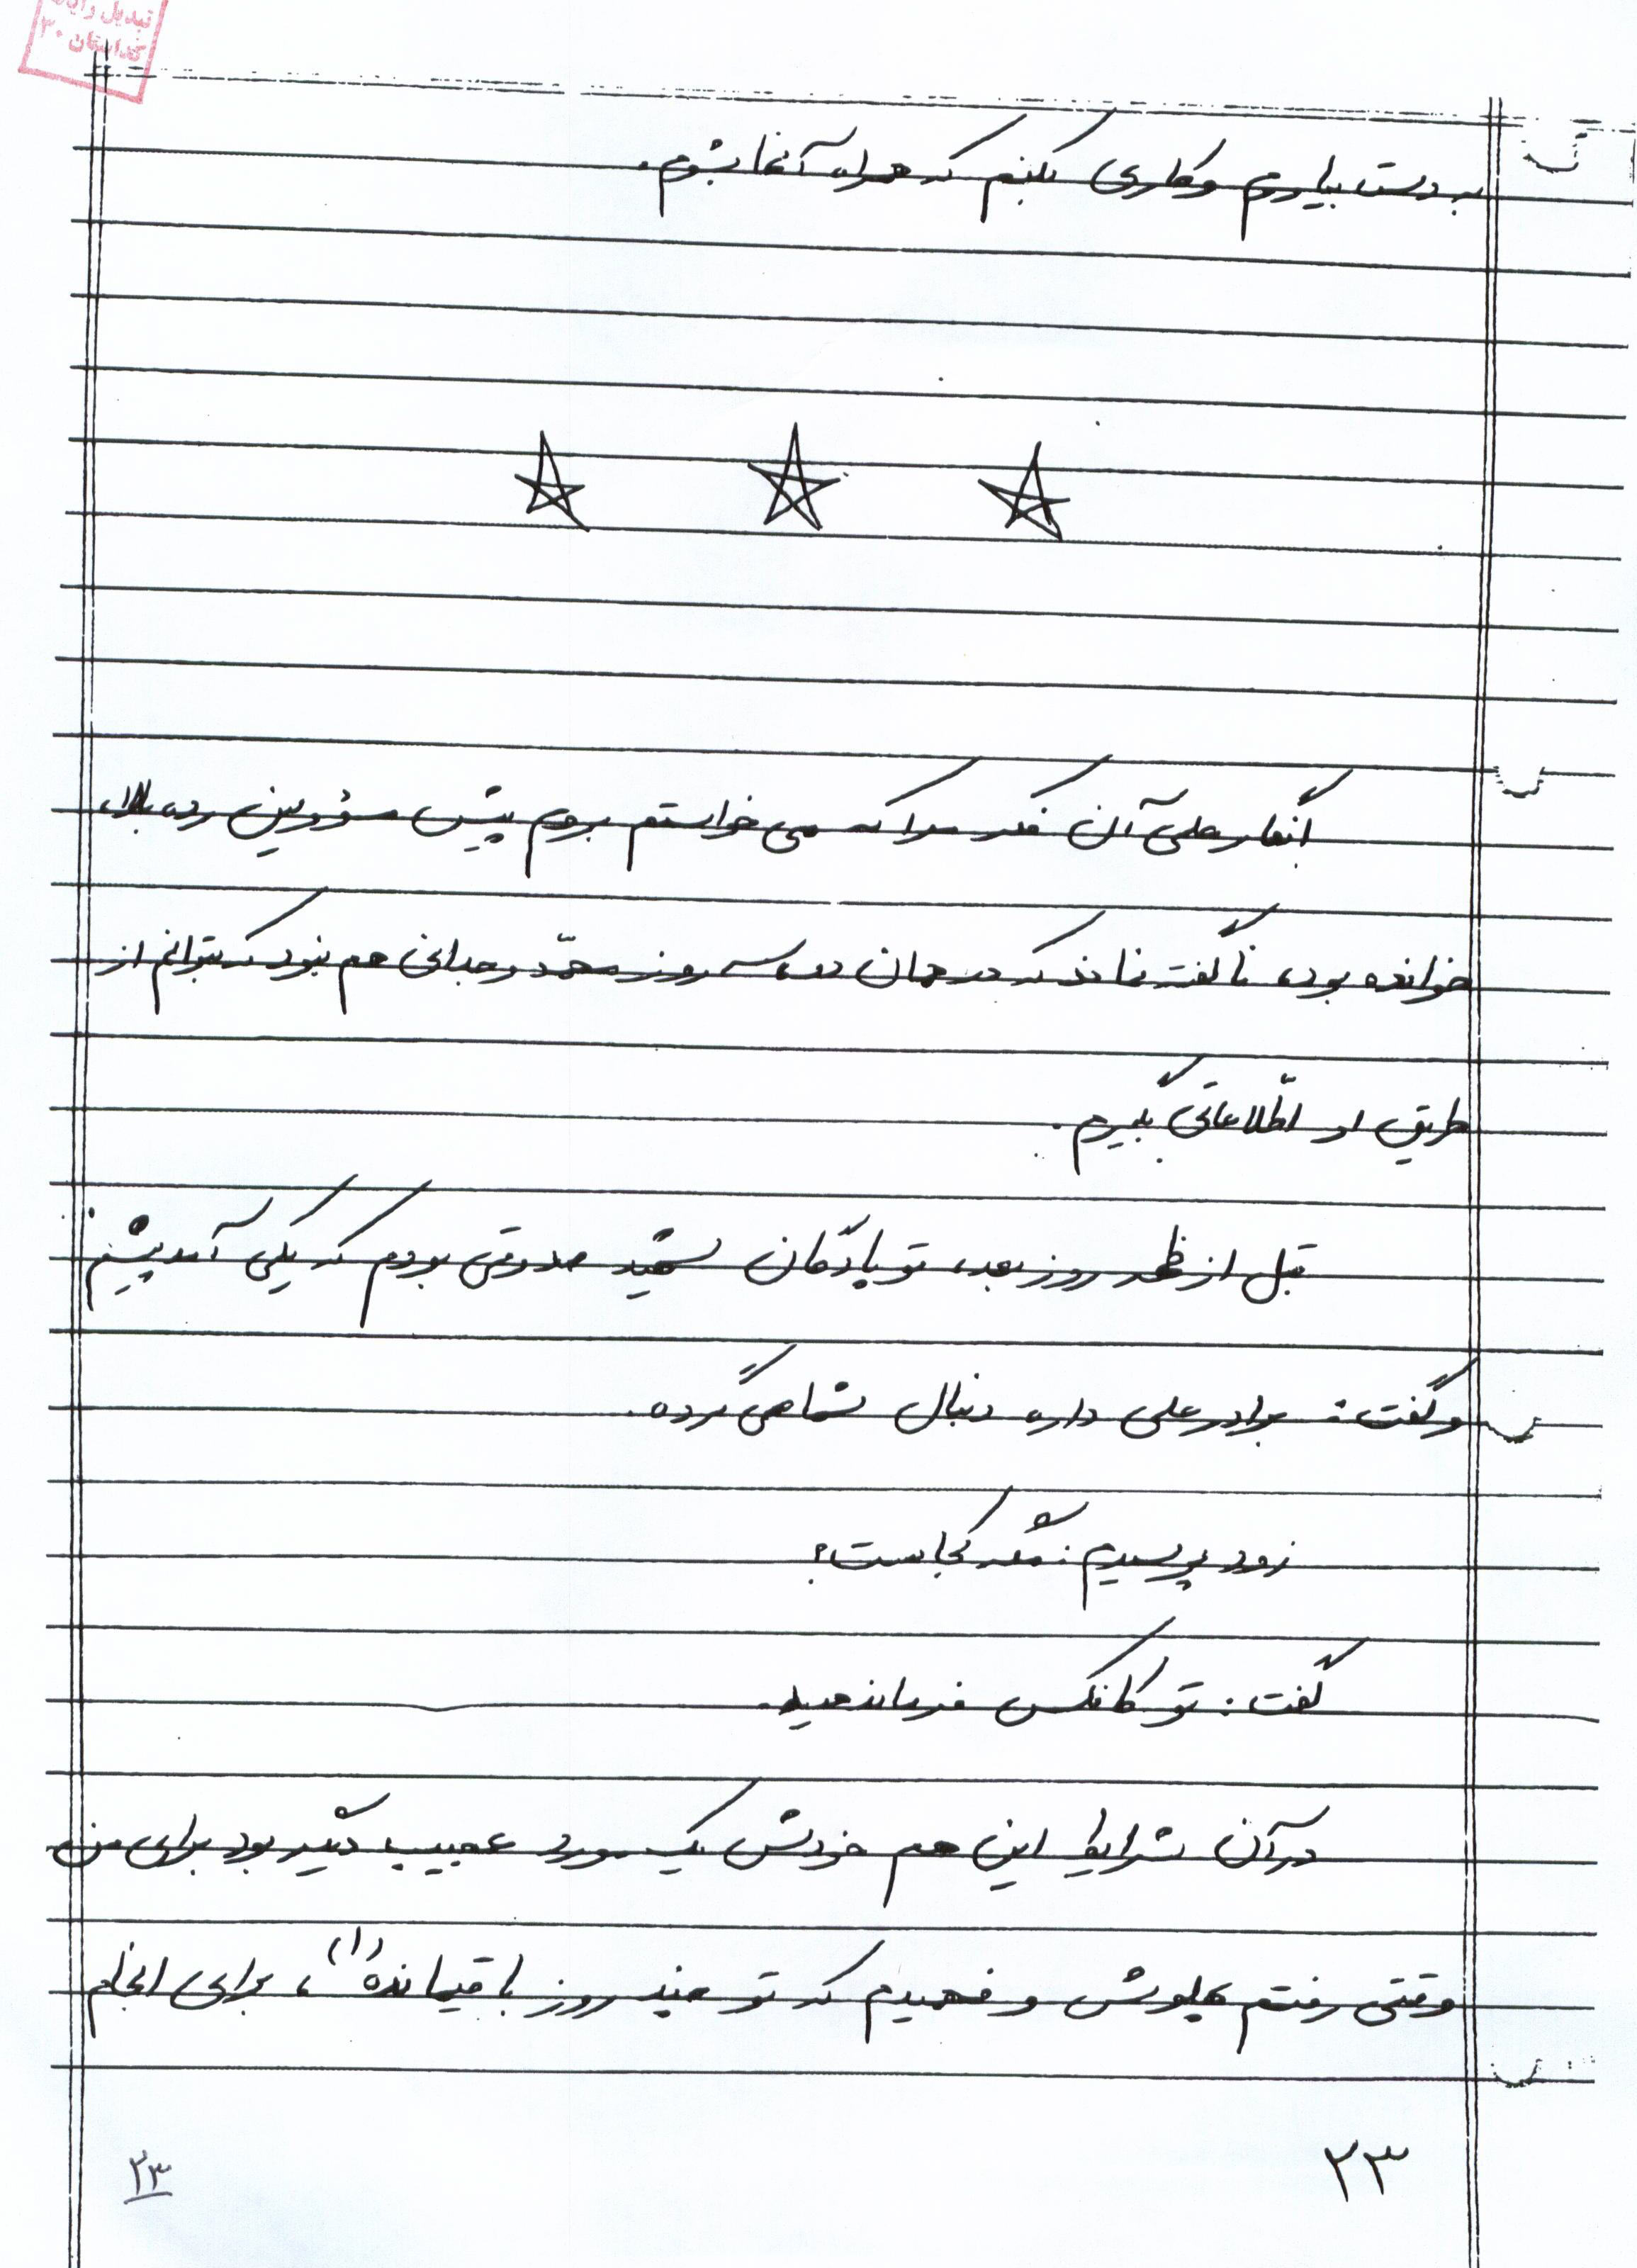 تبدیل رایا
کداستان ۳۰
به دست بیارم و کاری بکنم که همراه آنها بشوم.
انگار علی آن فکر مرا که می خواستم بروم پیش مسؤولین رده بالا،
خوانده بود، ناگفته نماند که در همان دو، سه روز محمّد وجدانی هم نبود که بتوانم از
طریق او اطّلاعاتی بگیرم.
قبل از ظهر روز بعد، تو پادگان شهید صدوقی بودم که یکی آمد پیشم
و گفت: برادر علی داره دنبال شما می گرده.
زود پرسیدم: مگه کجاست؟
گفت: تو کانکس فرماندهیه.
در آن شرایط این هم خودش یک مورد عجیب دیگر بود برای من
وقتی رفتم پهلویش و فهمیدم که تو چند روز باقیمانده(۱)، برای انجام
۲۳
۲۳